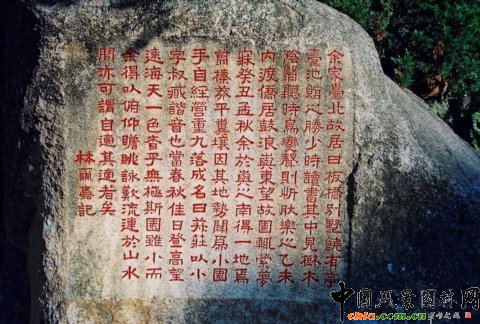 余家臺北故居曰板橋別墅饒有亭
臺池館之勝少時讀書其中見樹木
陰翳聽時鳥變聲則忻肰樂之乙未
內渡僑居鼓浪嶼東望故園輒縈夢
寐癸丑孟秋余於嶼之南得一地焉
翦榛莽平糞壤因其地勢闢為小園
手自經營重九落成名曰菽莊以小
字叔臧諧音也當春秋佳日登高望
遠海天一色杳乎無極斯園雖小而
余得以俯仰瞻眺詠歎流連於山水
間亦可謂自適其適者矣
林爾嘉記
中国风景园林网
chla.com.cn